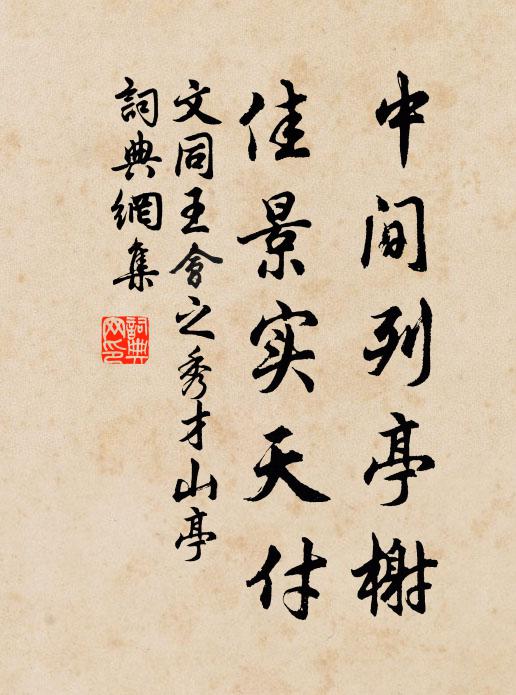 中间列亭榭
佳景实天付
文同王會之秀才山亭
詞典網集
詞典网印